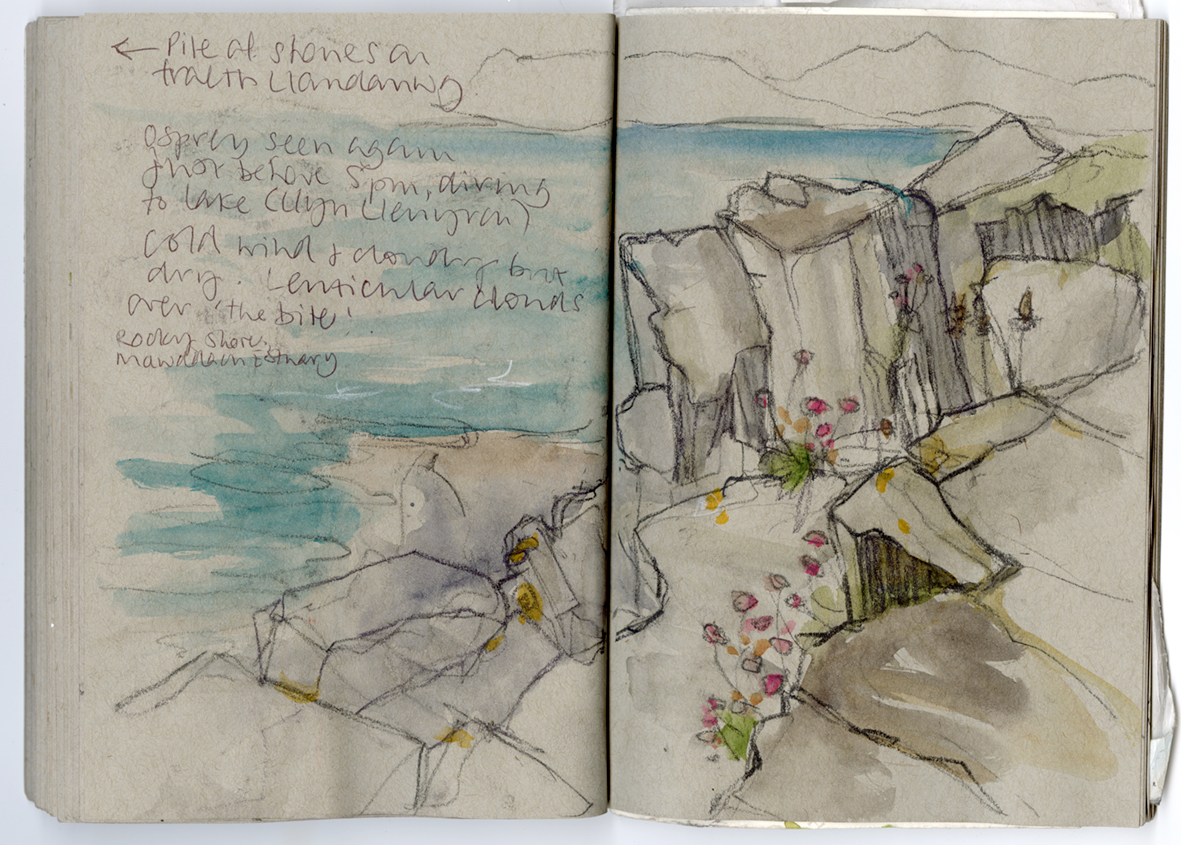 ← Pile of stones on
traeth Llandanwg
Osprey seen again
just before 5pm, diving
to lake (Llyn
cold wind & cloudy but
dry. Lenticular clouds
over 'the bite'
Rocky shore,
Mawddach Estuary